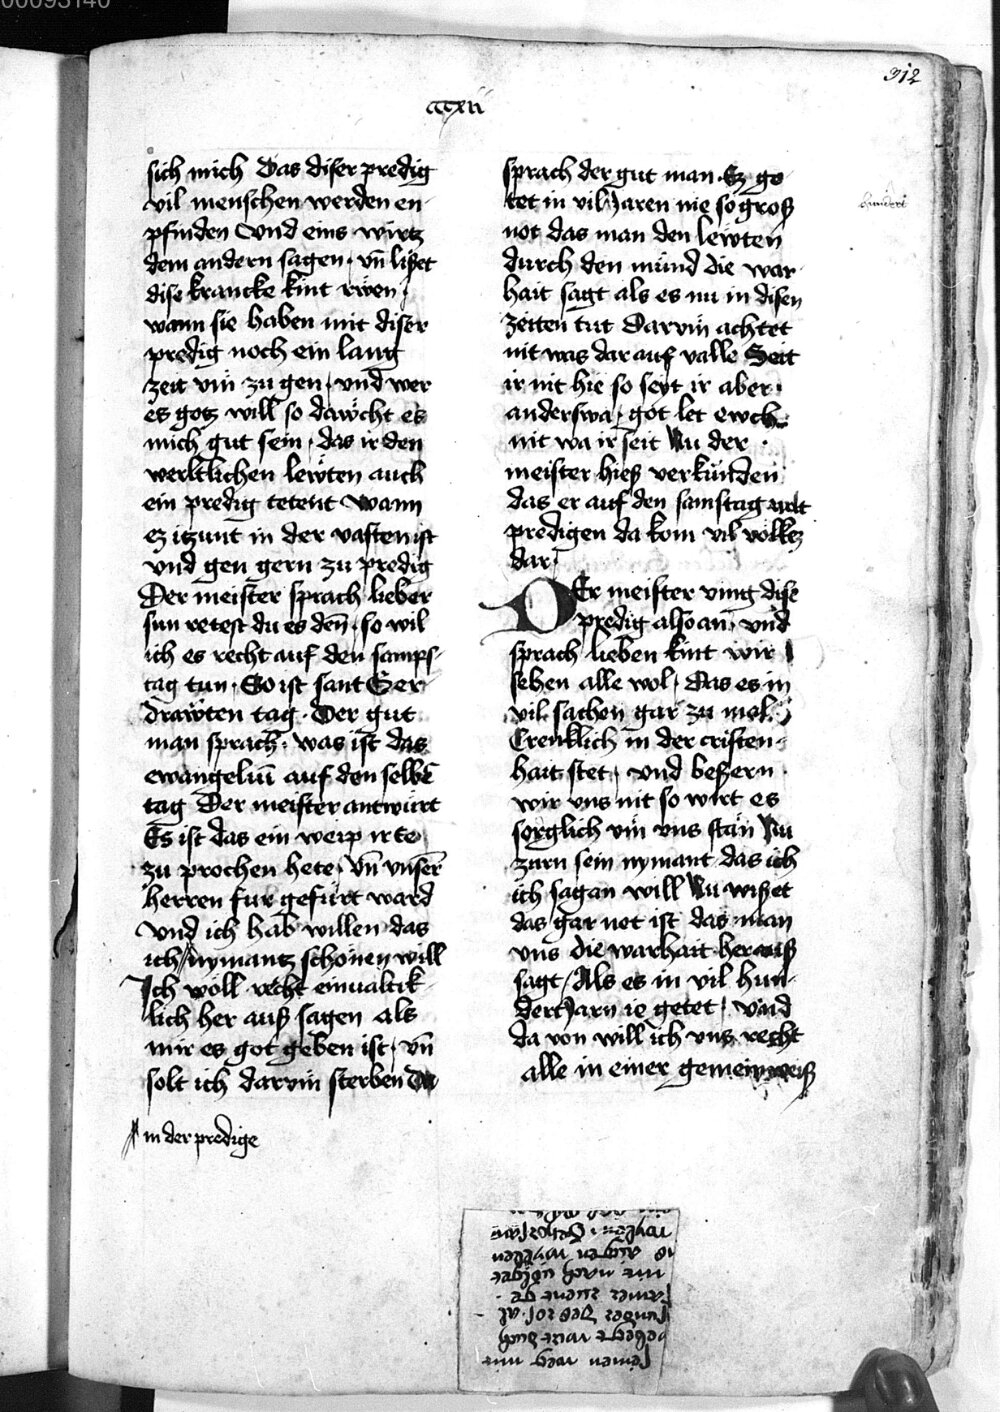 00093140
312
ccc xii
sich mich Das diser predig
vil menschen werden en
pfinden Vnd eins wirtz
dem andern sagen · vn̄ lißet
dise krancke kint rwen
wann sie haben mit diser
predig noch ein lang
zeit vm̄ zu gen · vnd wer
es gotz will so dawcht es
mich gut sein · das ir den
werltlichen lewten auch
ein predig tetent Wann
ez itzunt in der vasten ist
vnd gen gern zu predig
Der meister sprach lieber
sun retest du es den̄ · so wil
ich es recht auf den samps
tag tun · So ist sant Ger
drawten tag · Der gut
man sprach · was ist das
ewangeliū auf den selbē
tag Der meister antwürt
Es ist das ein weip ir te
zu prochen hete · Vn̄ vnserē
herren fur gefürt ward
Vnd ich hab willen das
ich nymantz schonen will
Ich wöll recht einualtik
lich her auß sagen als
mir es got geben ist · vn̄
solt ich darvm̄ sterben Do
in der predige
sprach der gut man · Ez ge
tet in vil Jaren nie so groß
hundert
not das man den lewten
durch den mund die war
hait sagt als es nu in disen
zeiten tut Darvm̄ achtet
nit was dar auf valle Seit
ir nit hie so seyt ir aber
anderswa · got let ewch
nit wa ir seit Nu der
meister hieß verkünden
das er auf den samstag wolt
predigen da kom vil volkez
dar
DEr meister ving dise
predig also an · vnd
sprach lieben kint wir
sehen alle wol · Das es in
vil sachen gar zu mol
Crencklich in der cristen
hait stet · vnd beßern
wir vns nit so wirt es
sorglich vm̄ vns stan Nu
zurn sein nymant das ich
ich sagan will Nu wißet
das gar not ist das man
vns die warhait her auß
sagt / Als es in vil hun
dert Jarn ie getet · Vnd
da von will ich vns recht
alle in einer gemein weiß